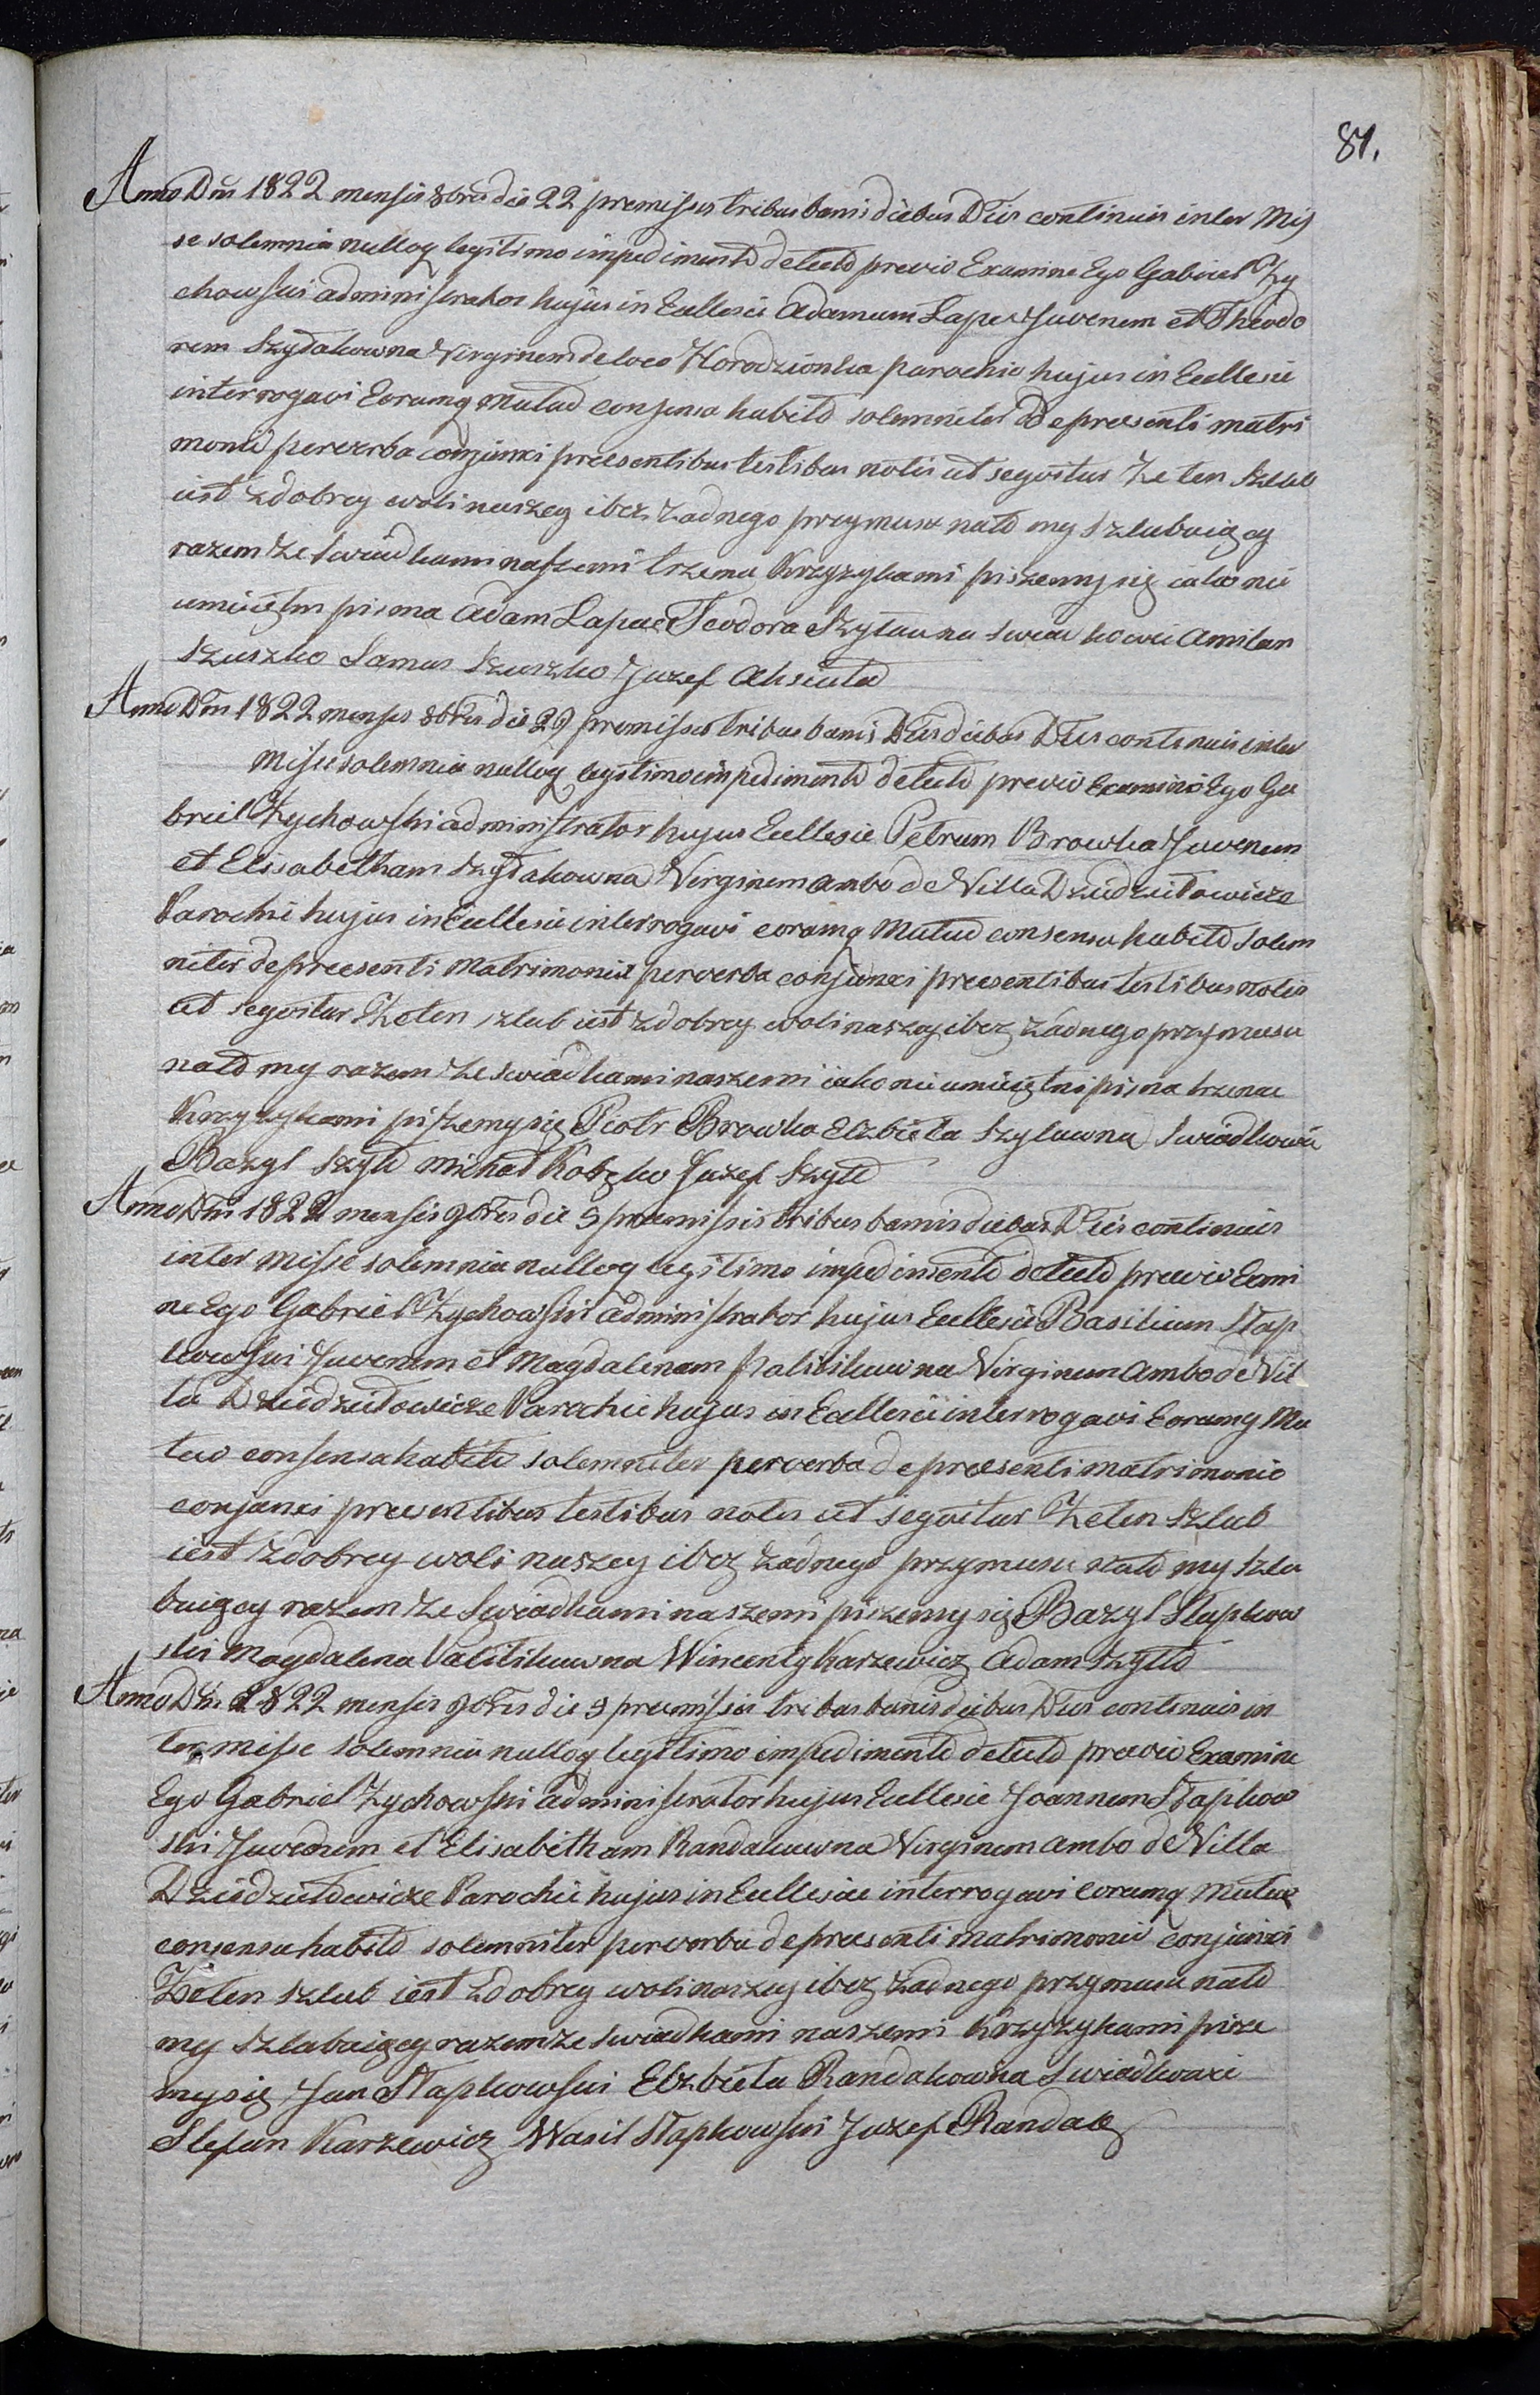 81.
Anno Dni 1822 mensis 8bris die 22 premissis tribus banis diebus Dnis continuis inter Mis
se solemnia nulloq legitimo impedimento detecto previo Examine Ego Gabriel Zy
chowski administrator hujus in Ecclesie Adamum Lapec Juvenem et Theodo
rem Szytakowna Virginem de loco Horodzionka parochie hujus in Ecclesie
interrogavi Eorumq Mutuo consensu habito solemniter de presenti matri
monio per verba conjunxi presentibus testibus notis ut seqvitur Ze ten szlub
iest z dobrey woli naszey i bez zadnego przymusu nato my szlubuiący
razem ze swiadkami naszemi trzema Krzyzykami piszemy się iako nie
umieiętni pisma Adam Lapec Teodora Szytauna swiadkowie Amilan
Szuszko Samus Szuszko Juzef Aksiuta
Anno Dni 1822 mensis 8bris die 29 premissis tribus banis Dnis diebus Dnis continuis inter
Misse solemnia nulloq legitimo impedimento detecto previo Examine Ego Ga
briel Zychowski administrator hujus Ecclesie Petrum Browka Juvenem
et Elisabetham Szytakowna Virginem ambo de Villa Dziedziułowicze
Parochie hujus in Ecclesie interrogavi eorumq Mutuo consensu habito solem
niter de preesenti Matrimonio per verba conjunxi preesentibus testibus notis
ut seqvitur Ze ten szlub iest z dobrey woli naszey i bez zadnego przymusu
nato my razem ze swiadkami naszemi iako nie umieiętni pisma trzema
Krzyzykami piszemy się Piotr Browka Elzbieta Szytawna Swiadkowie
Bazyl Szyto Michał Kobzko Juzef Szyto
Anno Dni 1822 mensis 9bris die 5 preemissis tribus banis diebus Dnis continuis
inter Misse solemnia nulloq legitimo impedimento detecto preevio Exami
ne Ego Gabriel Zychowski administrator hujus Ecclesie Basilium Stap
kowski Juvenem et Magdalenam Valitikuwna Virginem ambo de Vil
la Dziedziutowicze Parochie hujus in Ecclesie interrogavi Eorumq Mu
tuo consensu habito solemniter per verba de preesenti matrimonio
conjunxi preesentibus testibus notis ut seqvitur Ze ten szlub
iest z dobrey woli naszey i bez zadnego przymusu nato my szlu
buiący razem ze Swiadkami naszemi piszemy się Bazyl Stapkow
ski Magdalena Valitikuwna Wincenty Karzewicz Adam Szyto
Anno Dni 1822 mensis 9bris die 9 preemissis tribus banis diebus Dnis continuis in
ter misse solemnia nulloq legitimo impedimento detecto preevio Examine
Ego Gabriel Zychowski administrator hujus Ecclesie Joannem Stapkow
ski Juvenem et Elisabetham Randakuwna Virginem ambo de Villa
Dziedziutowicze Parochie hujus in Ecclesiae interrogavi eorumq mutuo
consensu habito solemniter per verba de preesenti matrimonio conjunxi
Ze ten szlub iest z dobrey woli naszey i bez zadnego przymusu nato
my szlubuiący razem ze swiadkami naszemi Krzyzykami pisze
my się Jan Stapkowski Elzbieta Randakowna Swiadkowie
Stefan Karzewicz Wasil Stapkowski Juzef Randak